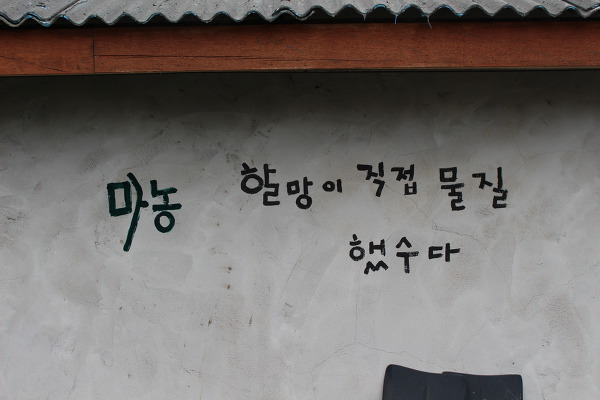 마농
할망이 직접 물질
했수다